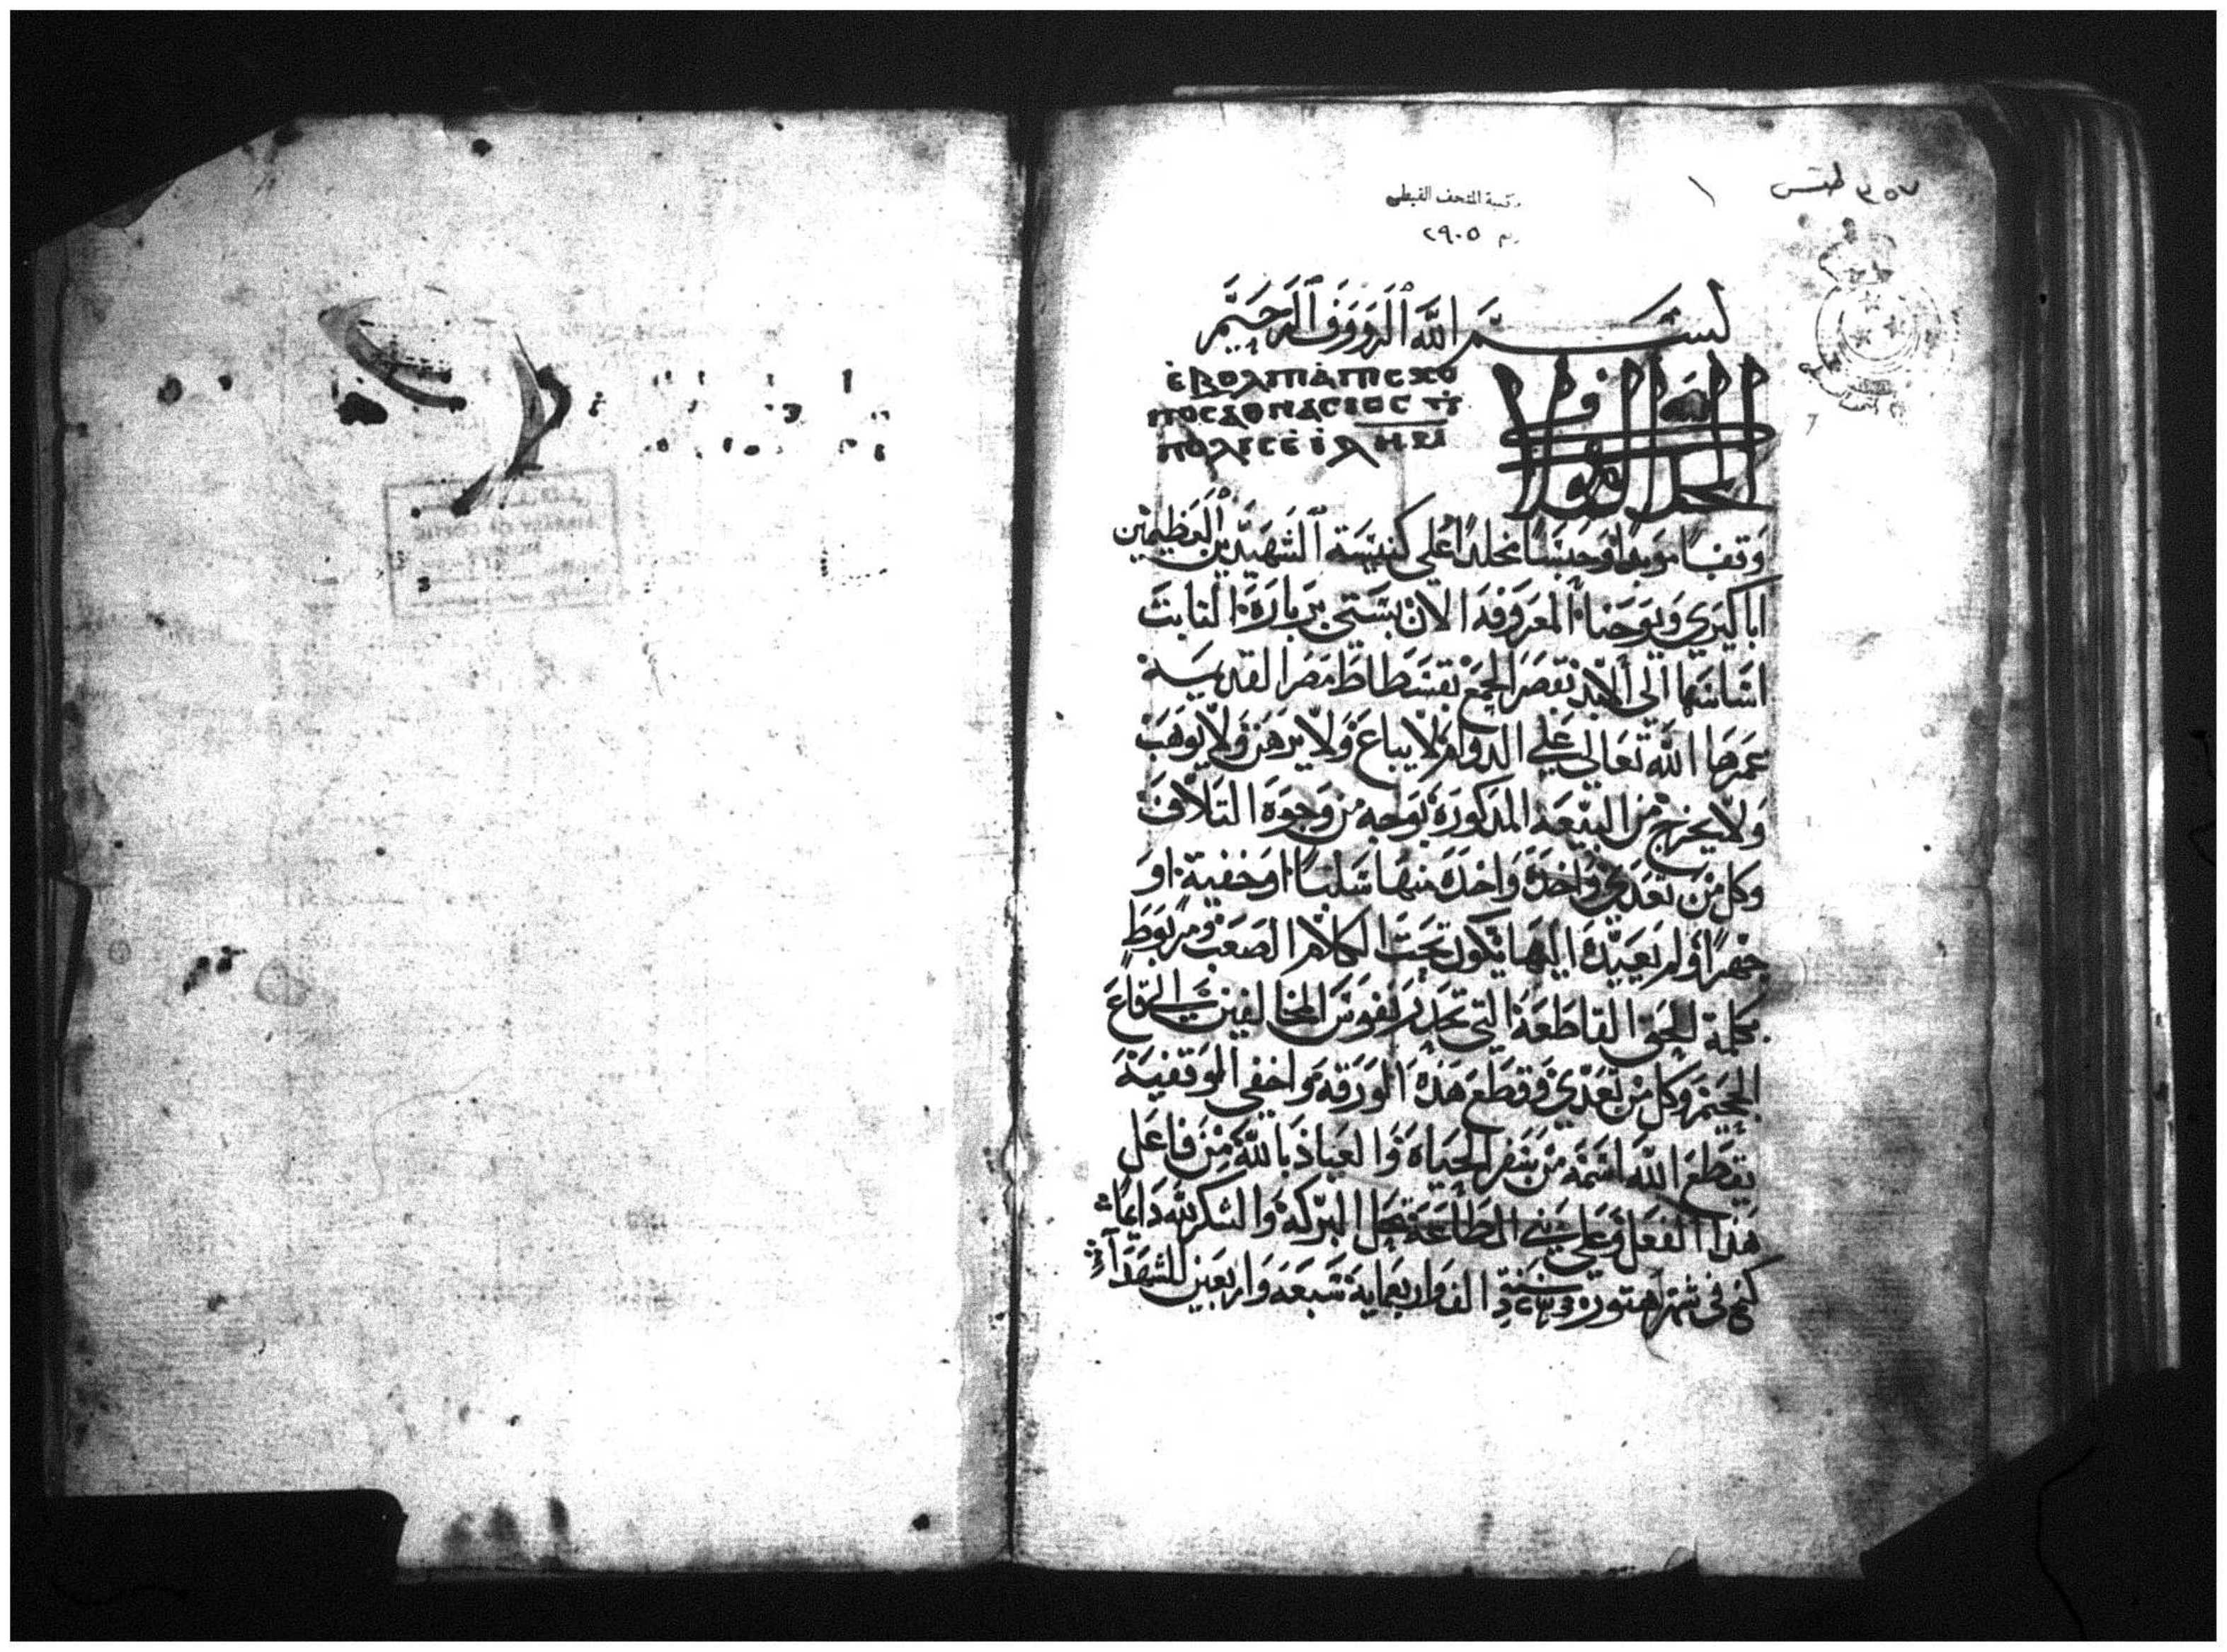 ٣٥٧ طقس
١
مكتبة المتحف القبطى
رقم ٢٩٠٥
بسم الله الرووف الرحيم
ⲉ̀ⲃⲟⲗ ϩⲓⲧⲉⲛ
ⲡⲟⲗⲓⲥ
الحمد لله
وَقفاً موبداً وَحبسًا مخلداً على كنيسَة الشهيدين العَظيمين
اباكيري وَيوحنا المعروفه الان بستي بربارَة الثابت
اساسَها الي الابد بقصَر الجمع بفسطاط مصَر القديمة
عَمرها الله تعَالى على الدوام لا يباع وَلا يرهن وَلا يوهَب
وَلا يخرج من البيعَه المدكورَة بوَجه من وَجوه التلافَ
وكل من تعَدي وَاخد وَاحدَه منها سَلبًا اوَ خفية اوَ
جهرًا وَلم يعيدَه اليها يكون تحَت الكلام الصعَب ومربوَط
بكلمة الحَق القاطعَة التي تحدر نفوسَ المخالفين الي قاع
الجحيم وَكل من تعَدي وَقطع هَذه الوَرقه وَاخفي الوَقفية
يقطع الله اسَمه من سَفر الحيَاة وَالعياذ باللهَ من فاعَل
هَذا الفعَل وَعلي بني الطاعَة تحل البركه وَالشكر لله دَايمًا
كتب في شهَر هتور سنة الف وَاربعماية سَبعَه وَاربعين للشهَدآء
LIBRARY OF COPTIC